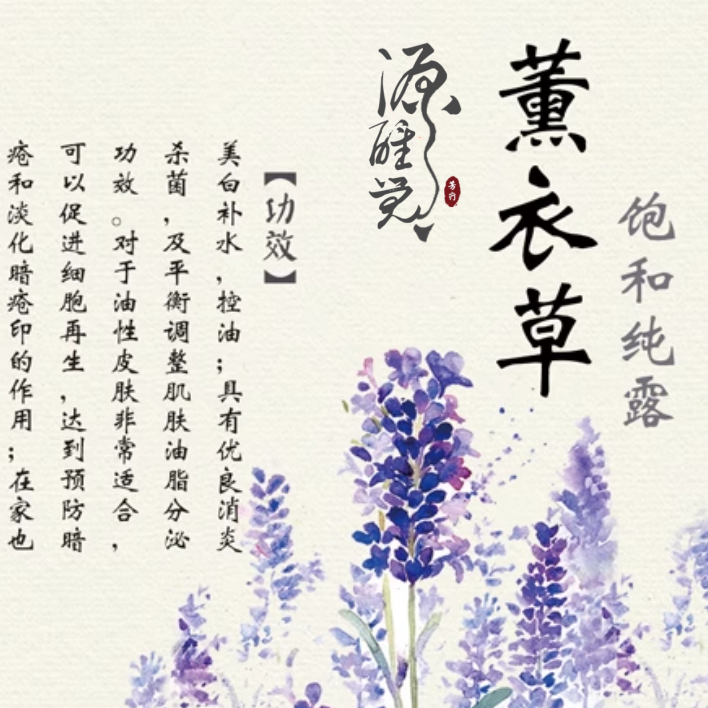 饱和纯露
薰衣草
源醒觉
【功效】
美白补水，控油；具有优良消炎
杀菌，及平衡调整肌肤油脂分泌
功效。对于油性皮肤非常适合，
可以促进细胞再生，达到预防暗
疮和淡化暗疮印的作用；在家也